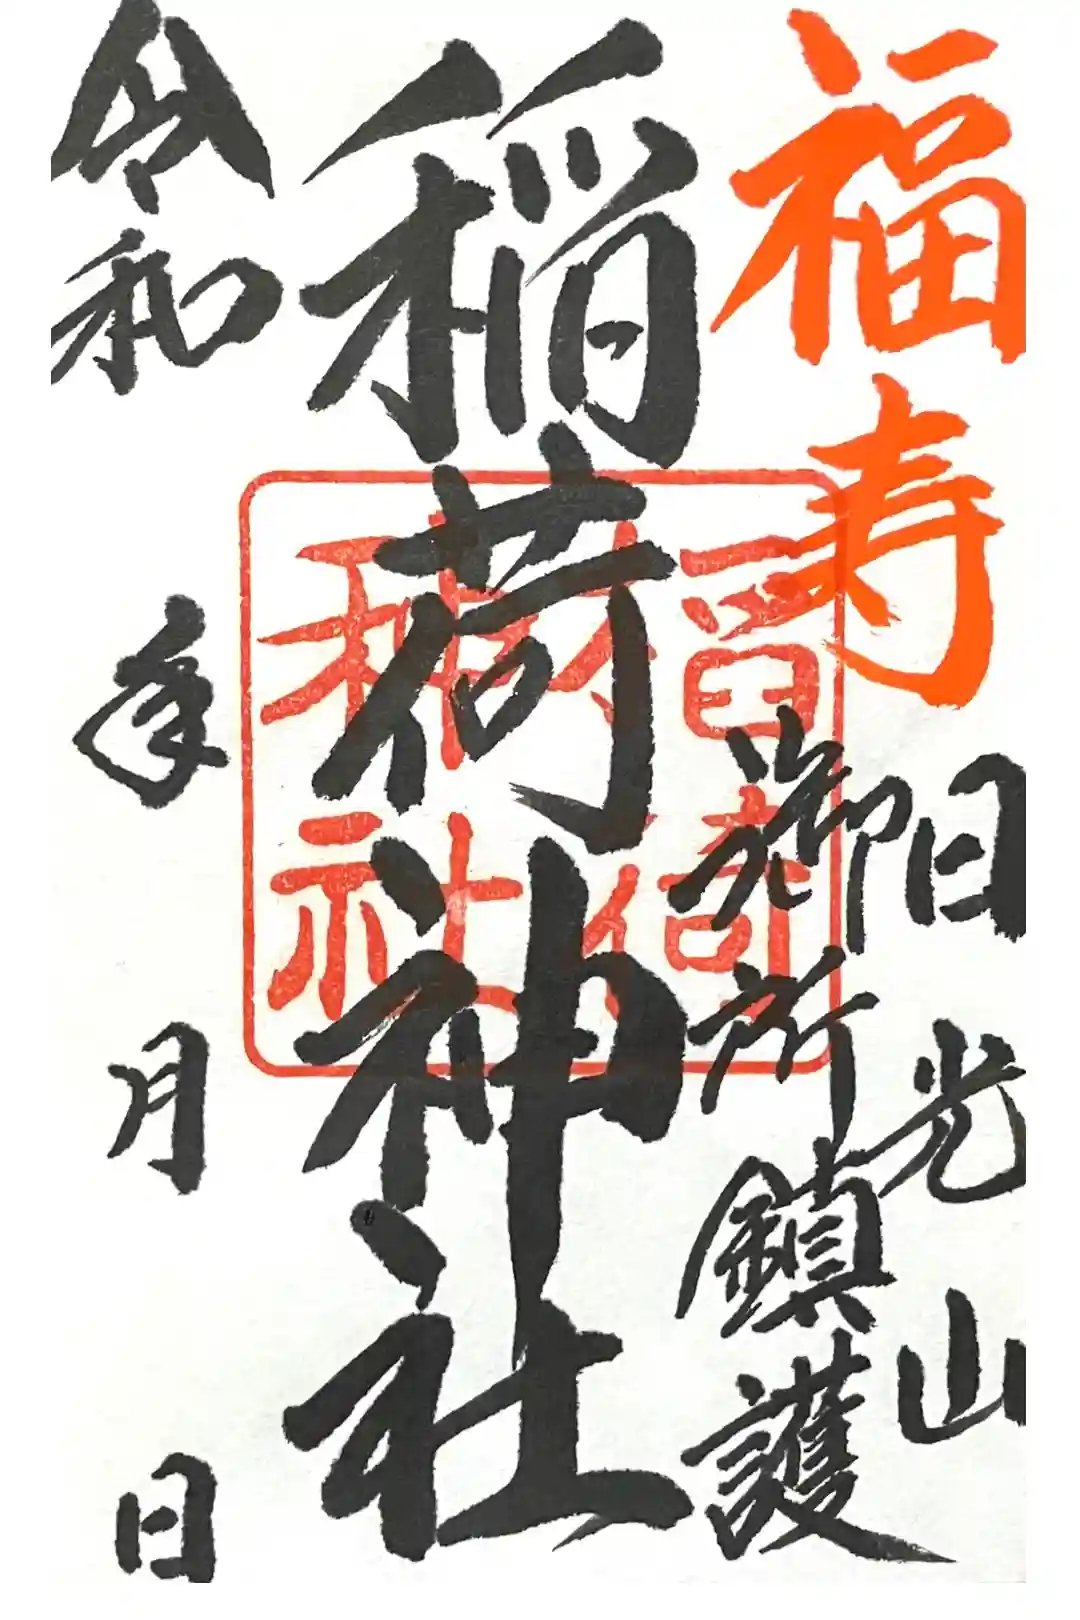 福寿
日光山
御所鎮護
稲荷神社
稲荷
神社
令和 年 月 日